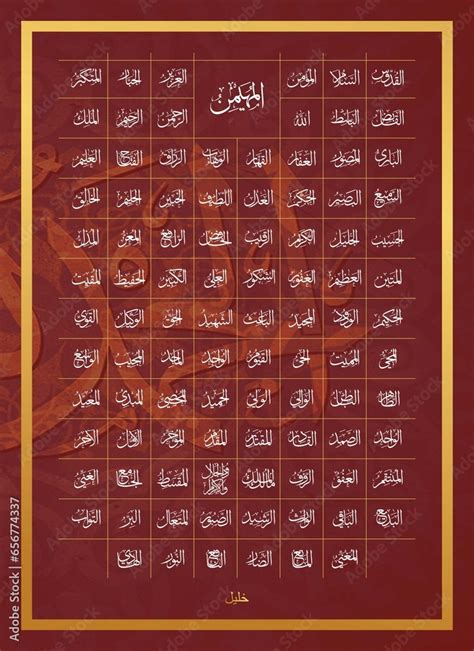 القدوس السلام المؤمن المهيمن العزيز الجبار المتكبر
القابض الباسط الله الرحمن الرحيم الملك
البارئ المصور الغفار القهار الوهاب الرزاق الفتاح العليم
السميع البصير الحكم العدل اللطيف الخبير الحليم الخالق
الحسيب الجليل الكريم الرقيب الخافض الرافع المعز المذل
المتين العظيم الغفور الشكور العلي الكبير الحفيظ المقيت
الحكيم الودود المجيد الباعث الشهيد الحق الوكيل القوي
المحيي المميت الحي القيوم الواجد الماجد المجيب الواسع
الظاهر الباطن الوالي الولي الحميد المحصي المبدئ المعيد
الواحد الصمد القادر المقتدر المقدم المؤخر الأول الآخر
المنتقم العفو الرؤوف مالك الملك ذو الجلال والإكرام المقسط الجامع الغني
البديع الباقي الوارث الرشيد الصبور المتعال البر التواب
المغني المانع الضار النافع النور الهادي
خليل
Adobe Stock | #656774337